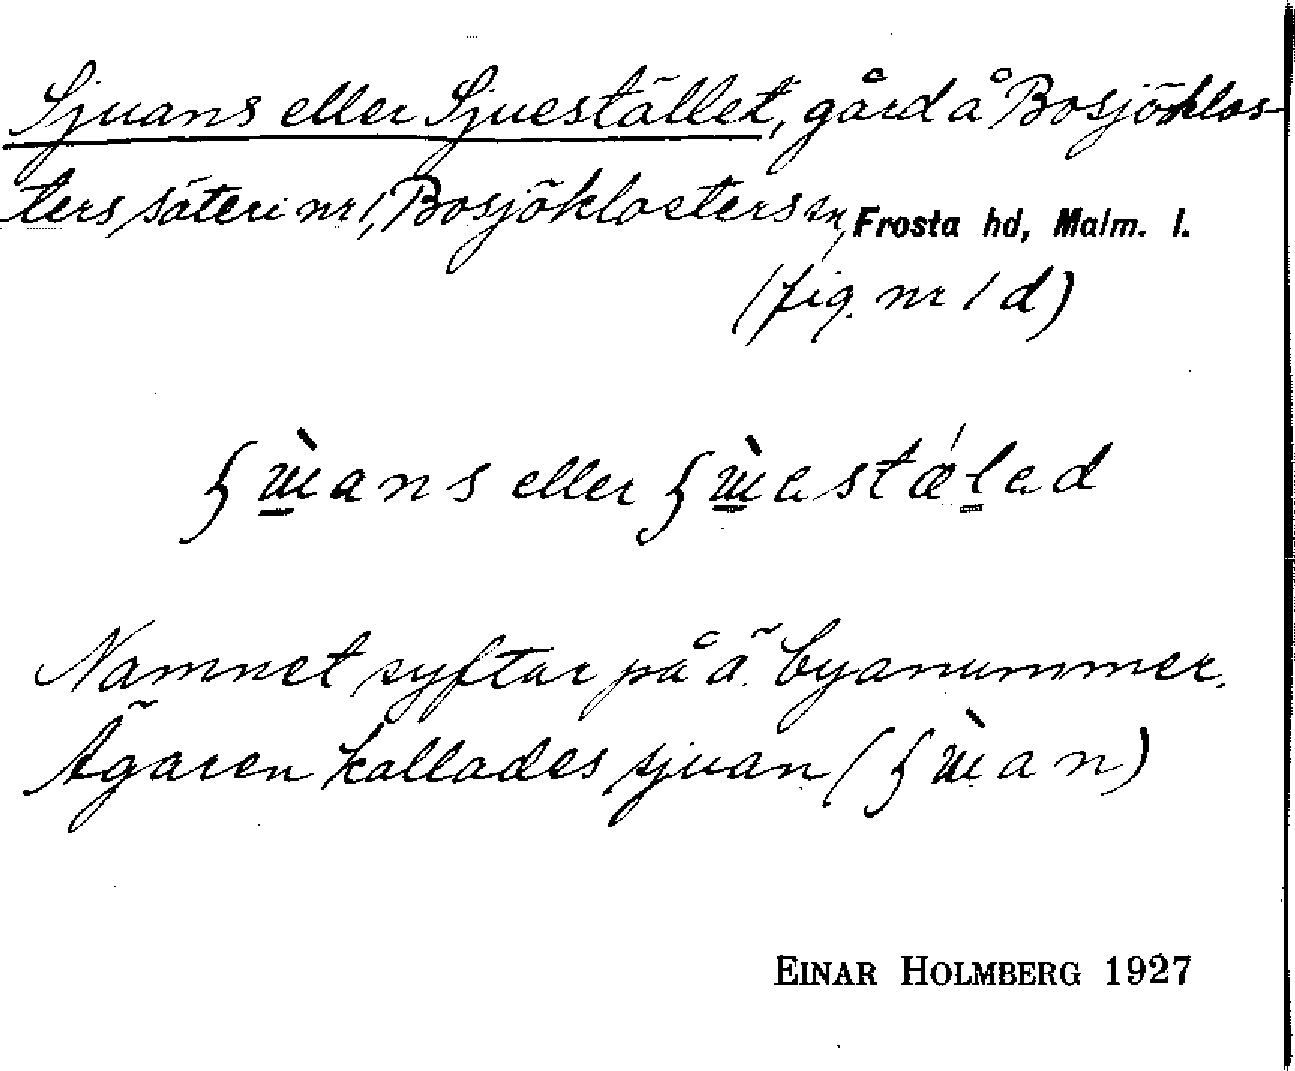 Sjuans eller Sjuestället, gård å Bosjöklos-
ters säteri nr 1, Bosjöklosters sn, Frosta hd, Malm. l.
(fig. nr 1 d)
eller
Namnet syftar på ä. byanummer.
Ägaren kallades sjuan
EINAR HOLMBERG 1927